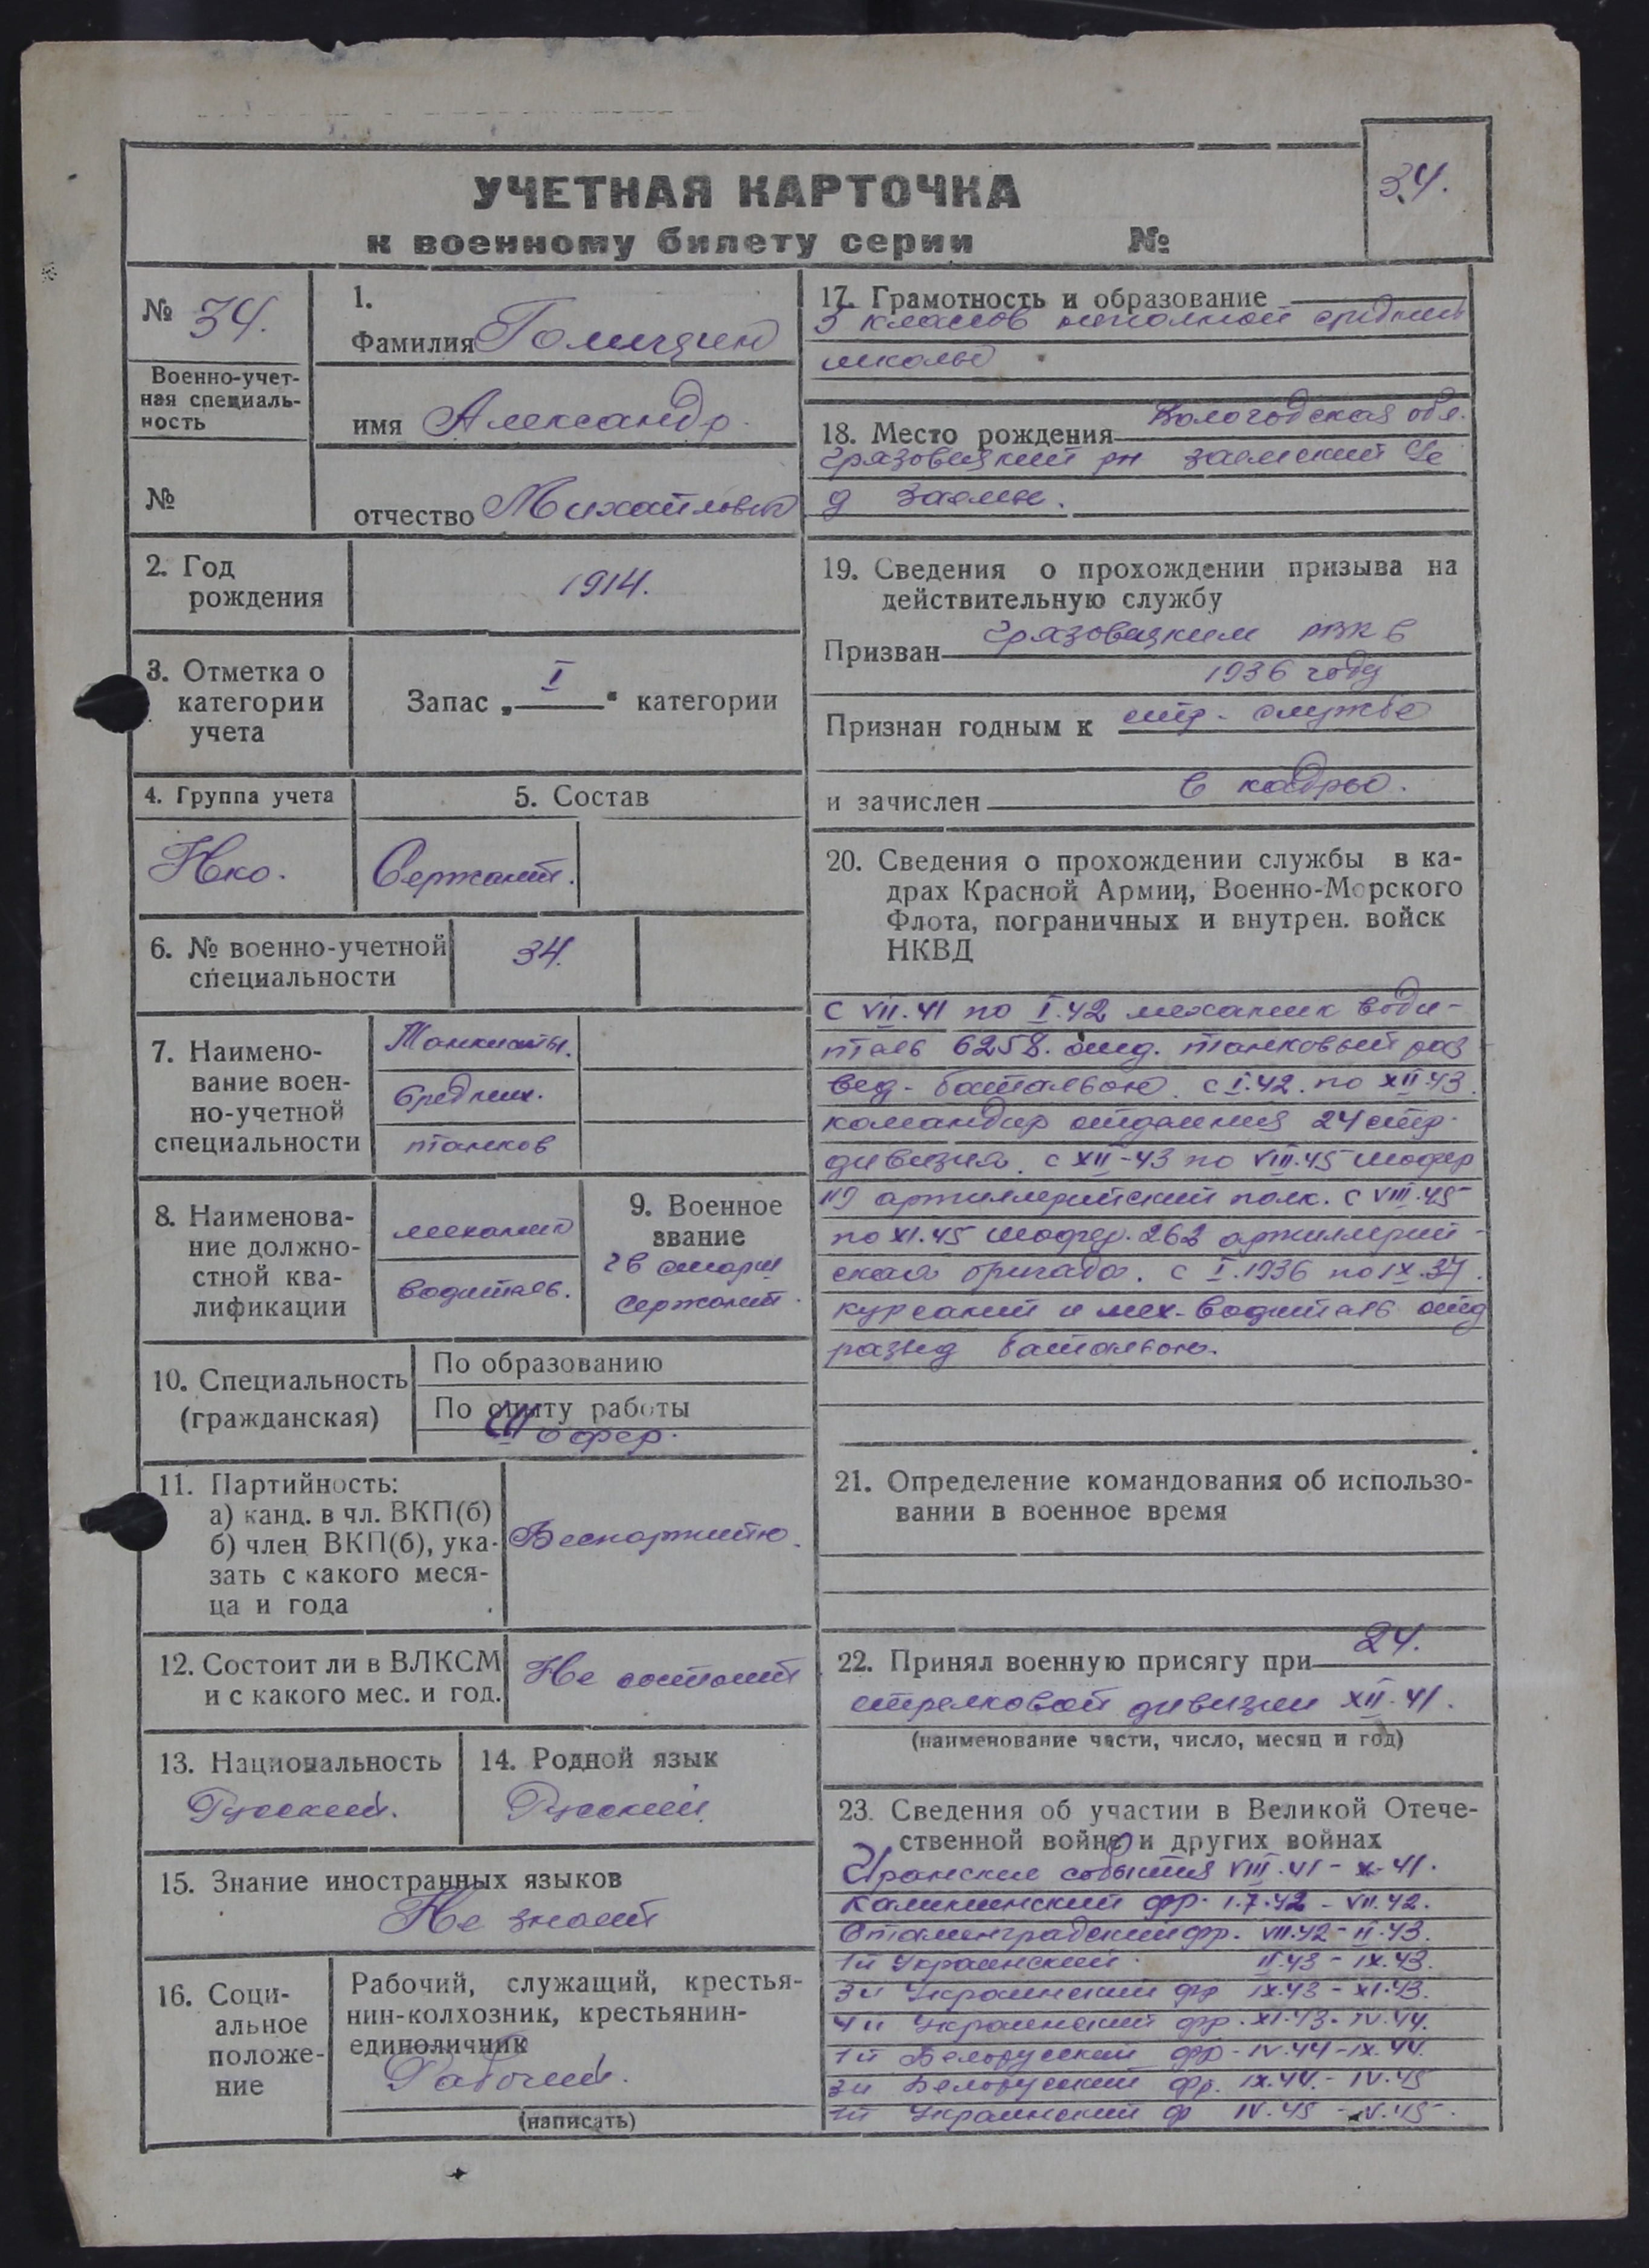 34.
УЧЕТНАЯ КАРТОЧКА
к военному билету серии №
№ 34.
Военно-учет-
ная специаль-
ность
№
1.
Фамилия Голицин
имя Александр.
отчество Михайлович
2. Год
рождения
1914.
3. Отметка о
категории
учета
Запас „ I " категории
4. Группа учета
Нко.
5. Состав
Сержант.
6. № военно-учетной
специальности
34.
7. Наимено-
вание воен-
но-учетной
специальности
Танкисты.
средних.
танков
8. Наименова-
ние должно-
стной ква-
лификации
механик
водитель.
9. Военное
звание
гв старш
сержант.
10. Специальность
(гражданская)
По образованию
По опыту работы
Шофер.
11. Партийность:
а) канд. в чл. ВКП(б)
б) член ВКП(б), ука-
зать с какого меся-
ца и года
12. Состоит ли в ВЛКСМ
и с какого мес. и год.
Не состоит
13. Национальность
Русский.
14. Родной язык
Русский
15. Знание иностранных языков
Не знает
16. Соци-
альное
положе-
ние
Рабочий, служащий, крестья-
нин-колхозник, крестьянин-
единоличник
Рабочий.
(написать)
17. Грамотность и образование
классов неполной средней
школы
18. Место рождения Вологодская обл.
Грязовецкий рн Заемский с/с
д Заемье.
19. Сведения о прохождении призыва на
действительную службу
Призван Грязовецким РВК в
1936 году
Признан годным к стр. службе
и зачислен в кадры.
20. Сведения о прохождении службы в ка-
драх Красной Армии, Военно-Морского
Флота, пограничных и внутрен. войск
НКВД
С VII.41 по I.42 механик води-
тель 6258. отд. танковый раз
вед. батальон. с I.42. по XII.43.
командир отделения 24 стр.
дивизия. с XII-43 по VIII.45 шофер
119 артиллерийский полк. С VIII.45
по XI.45 шофер. 262 артиллерий-
ская бригада. с I.1936 по IX.37.
курсант и мех-водитель отд
развед батальон.
21. Определение командования об использо-
вании в военное время
22. Принял военную присягу при 24.
стрелковой дивизии XII.41.
(наименование части, число, месяц и год)
23. Сведения об участии в Великой Отече-
ственной войне и других войнах
Иранские события VIII.41 - X-41.
Калининский фр. 1.7.42 - VII.42.
Сталинградский фр. VII.42 - II.43.
1й Украинский II.43 - IX.43.
3й Украинский фр IX.43 - XI.43.
4й Украинский фр. XI.43 - IV.44.
1й Белорусский фр - IV.44 - IX.44.
3й Белорусский фр. IX.44. - IV.45
1й Украинский ф IV.45 - V.45.